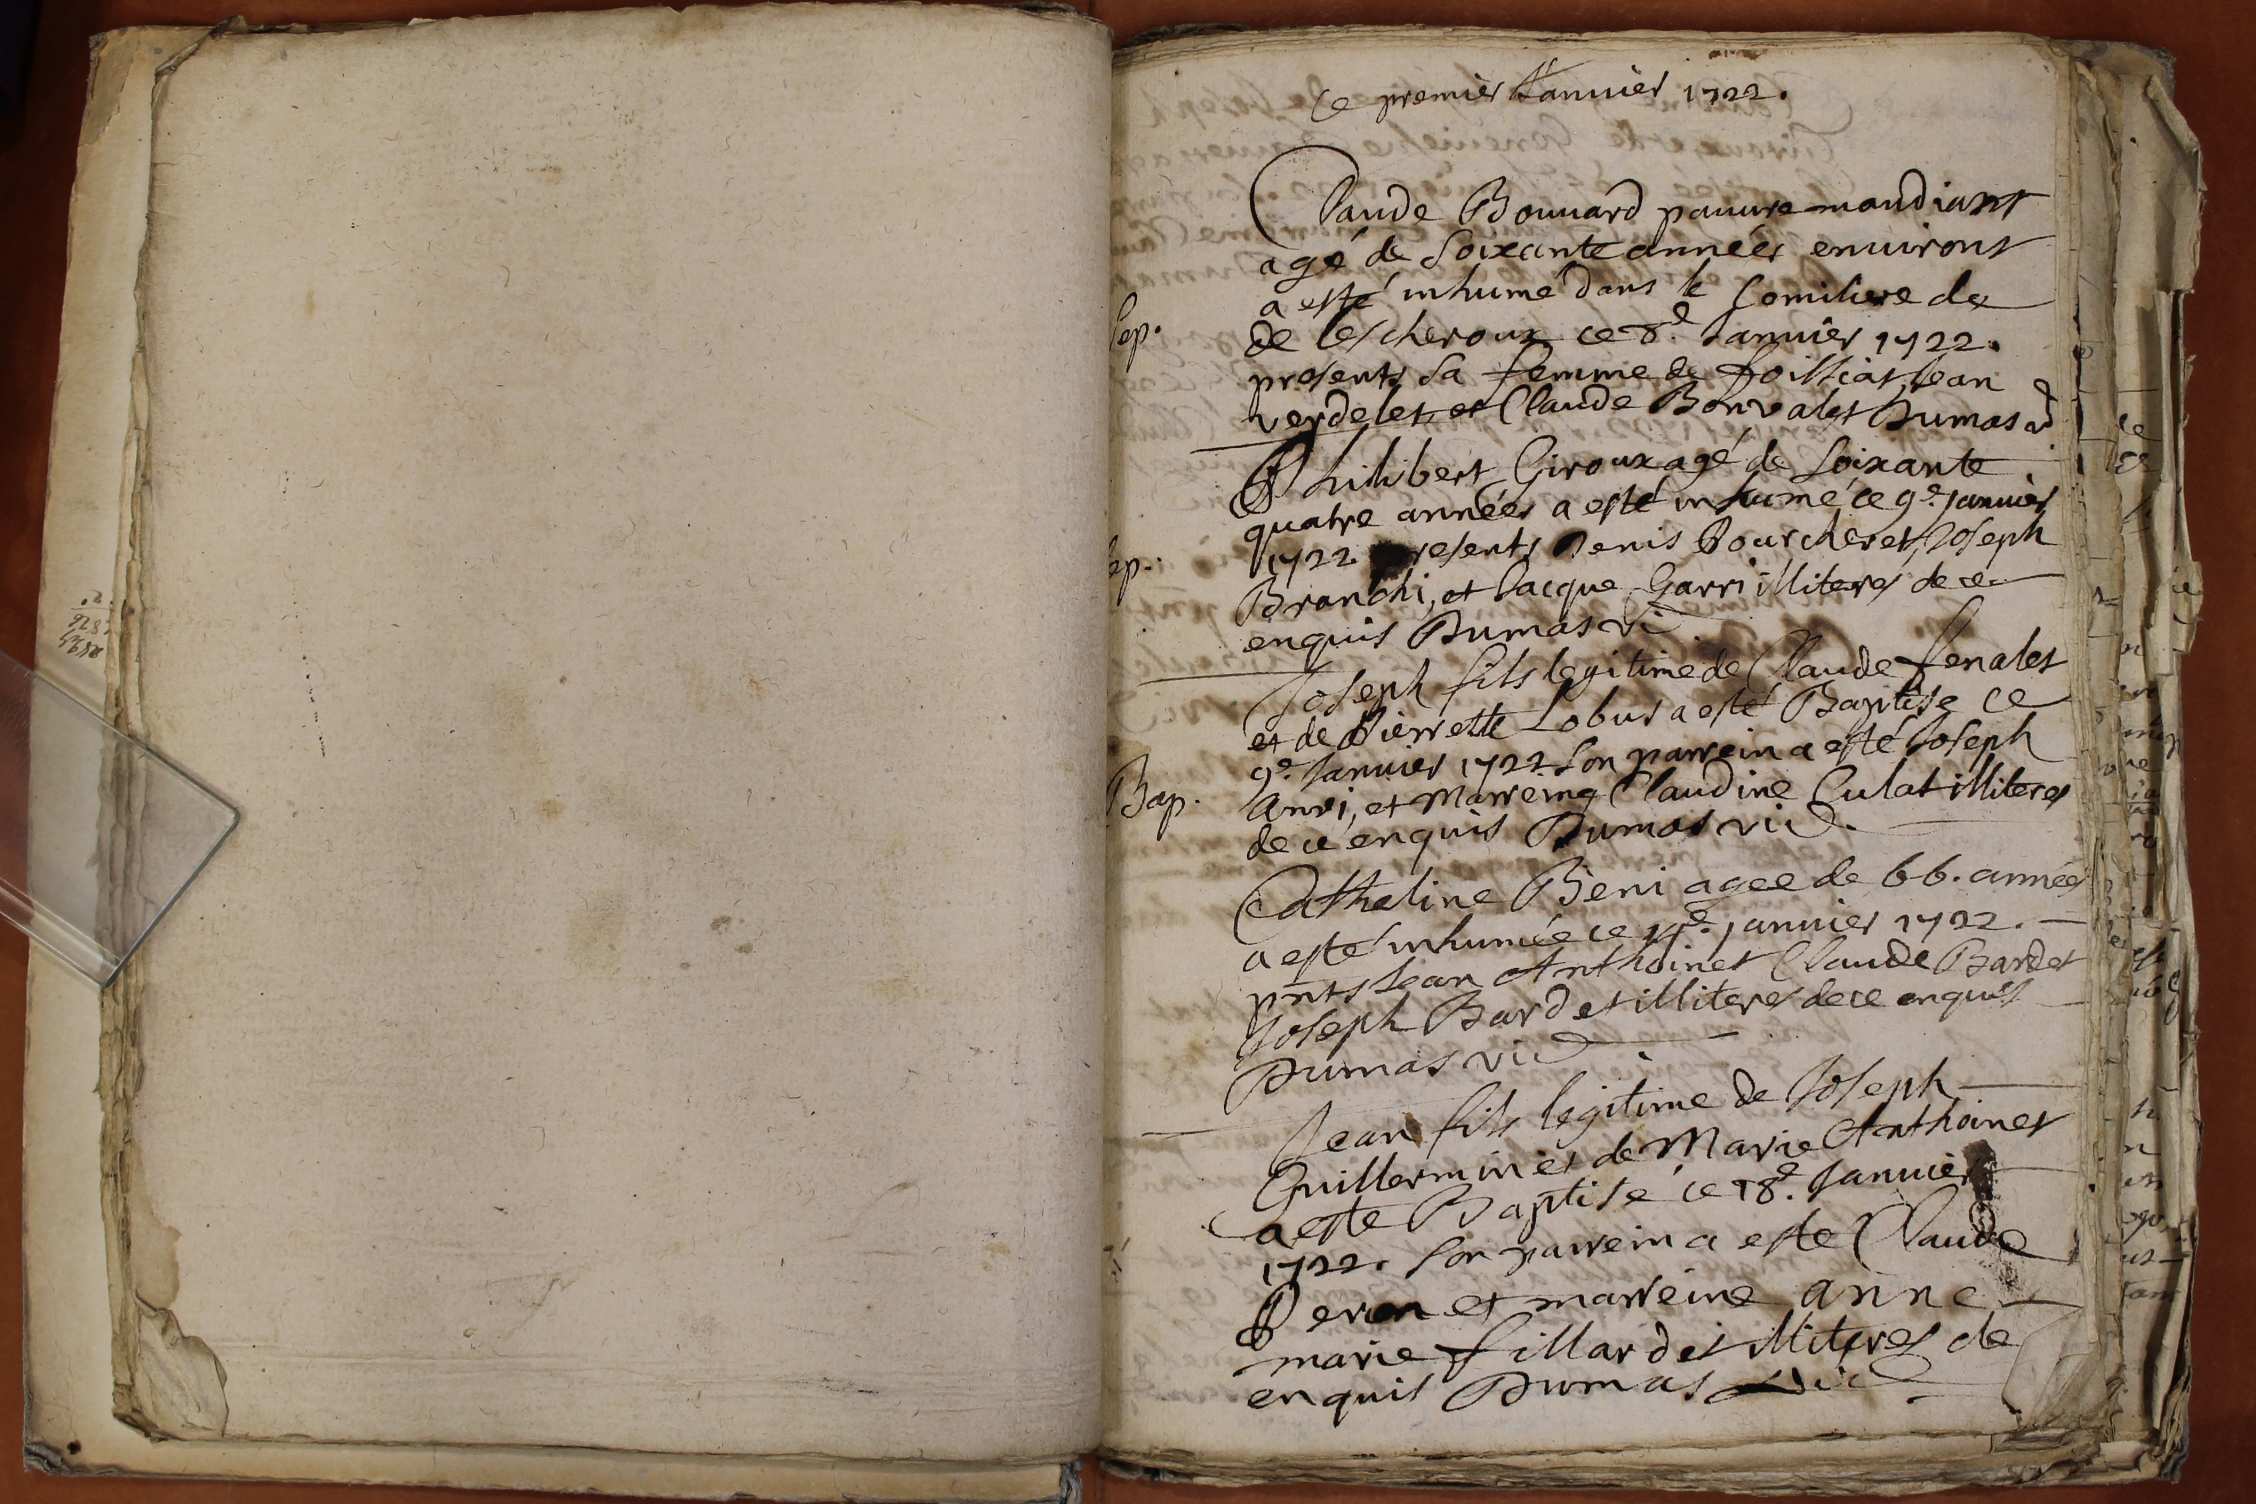 Ce premier Januier 1722.
Claude Bouuard pauure mandiant
agé de soixante années enuiront
a esté inhumé dans le Cemitiere de
Sep.
de lescheroux ce 8e. Januier 1722.
presents sa femme de foissiat, Jean
verdelet et Claude Bonvalet Dumas vi
Philibert Giroux agé de soixante
quatre années a esté inhumé ce 9e. januier
Sep.
1722 presents Denis Bourcheret, Joseph
Branchi, et Jacque Garri illiterés de ce
enquis Dumas vic
Joseph fils legitime de Claude fenalet
et de Pierrette Lobus a esté Baptisé ce
9e. Januier 1722 son parrein a esté Joseph
Bap.
Anri, et Marreine Claudine Culat illiterés
de ce enquis Dumas vic.
Catheline Beni agee de 66. années
a esté inhumée ce januier 1722.
pnts Jean Anthoinet Claude Bardet
Joseph Bardet illiterés de ce enquis
Dumas vic
Jean fils legitime de Joseph
Guillermin et de Marie Anthoinet
a este Baptisé ce 18e. Januier
1722. son parrein a este Claude
Peron et marreine anne
marie fillardet illiterés de
enquis Dumas vic